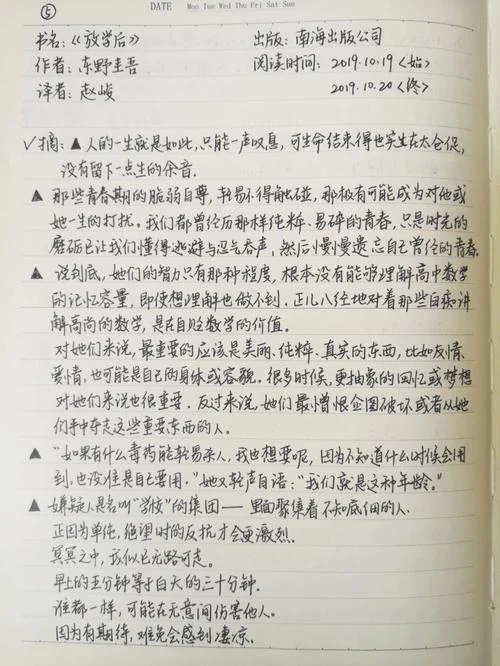 ⑤
DATE Mon Tue Wed Thu Fri Sat Sun
书名:《放学后》 出版:南海出版公司
作者:东野圭吾 阅读时间:2019.10.19<始>
译者:赵峻 2019.10.20<终>
√摘:▲人的一生就是如此,只能一声叹息,可生命结束得也实在太仓促,
没有留下一点生的余音.
▲那些青春期的脆弱自尊,轻易不得触碰,那极有可能成为对他或
她一生的打扰.我们都曾经历那样纯粹、易碎的青春,只是时光的
磨砺已让我们懂得逃避与忍气吞声,然后慢慢遗忘自己曾经的青春.
▲说到底,她们的智力只有那种程度,根本没有能够理解高中数学
的记忆容量,即使想理解也做不到.正儿八经地对着那些白痴讲
解高尚的数学,是在自贬数学的价值.
对她们来说,最重要的应该是美丽、纯粹、真实的东西,比如友情、
爱情,也可能是自己的身体或容貌.很多时候,更抽象的回忆或梦想
对她们来说也很重要.反过来说,她们最憎恨企图破坏或者从她
们手中夺走这些重要东西的人.
▲“如果有什么毒药能轻易杀人,我也想要呢,因为不知道什么时候会用
到,也没准是自己要用.”她又轻声自语:“我们就是这种年龄。”
▲嫌疑人是名叫“学校”的集团——里面聚集着不知底细的人.
正因为单纯,绝望时的反抗才会更激烈.
冥冥之中,我似已无路可走。
早上的五分钟等于白天的三十分钟.
谁都一样,可能在无意间伤害他人。
因为有期待,难免会感到凄凉.